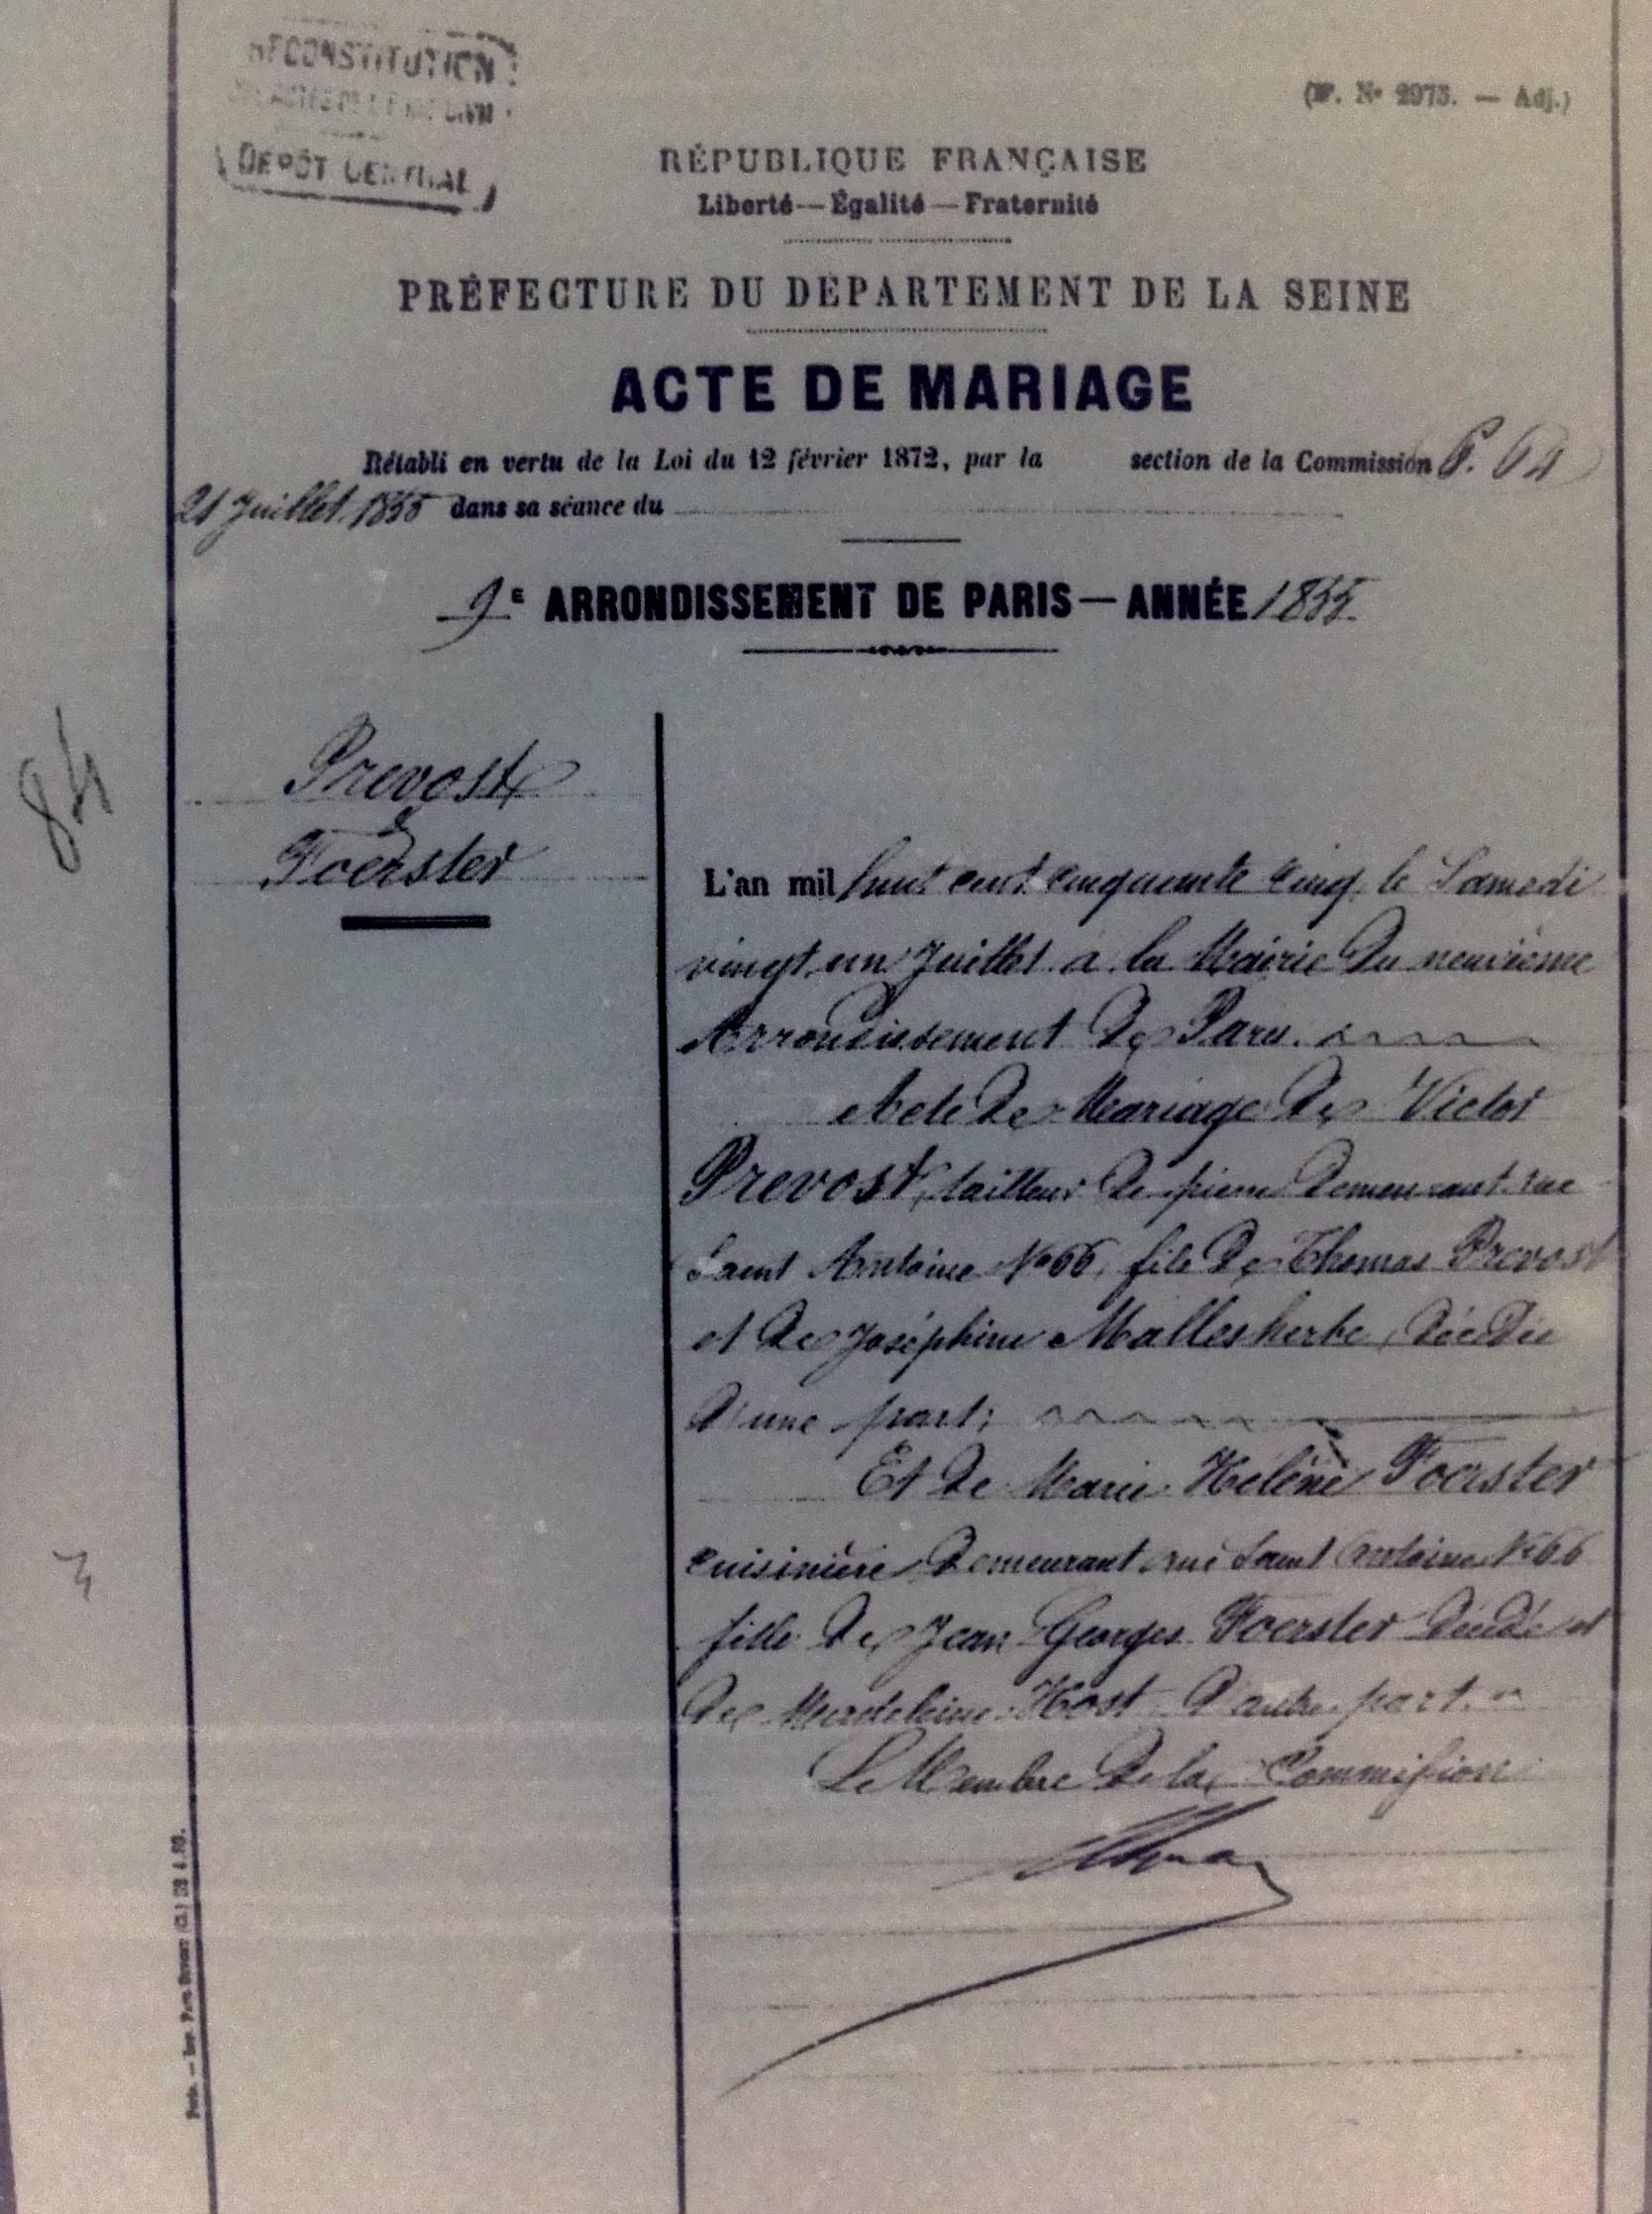 RECONSTITUTION
DES ACTES DE L'ETAT CIVIL
DEPÔT CENTRAL
(IP. Nº 2973. — Adj.)
RÉPUBLIQUE FRANÇAISE
Liberté — Égalité — Fraternité
PRÉFECTURE DU DÉPARTEMENT DE LA SEINE
ACTE DE MARIAGE
Rétabli en vertu de la Loi du 12 février 1872, par la section de la Commission
21 Juillet 1855 dans sa séance du
9e ARRONDISSEMENT DE PARIS — ANNÉE 1855
84
Prevost
&
Foerster
L'an mil huit cent cinquante cinq le Samedi
vingt un Juillet a la Mairie du neuvième
Arrondissement de Paris.
Acte de Mariage de Victor
Prevost, tailleur de pierre demeurant rue
Saint Antoine No 66, fils de Thomas Prevost
et de Joséphine Mallesherbe, décédée
D'une part;
Et de Marie Helène Foerster
cuisinière demeurant rue Saint Antoine No 66
fille de Jean Georges Foerster décédé et
de Madeleine Host D'autre part.
Le Membre de la Commission
Paris. — Imp. Paul Dupont (Cl.)